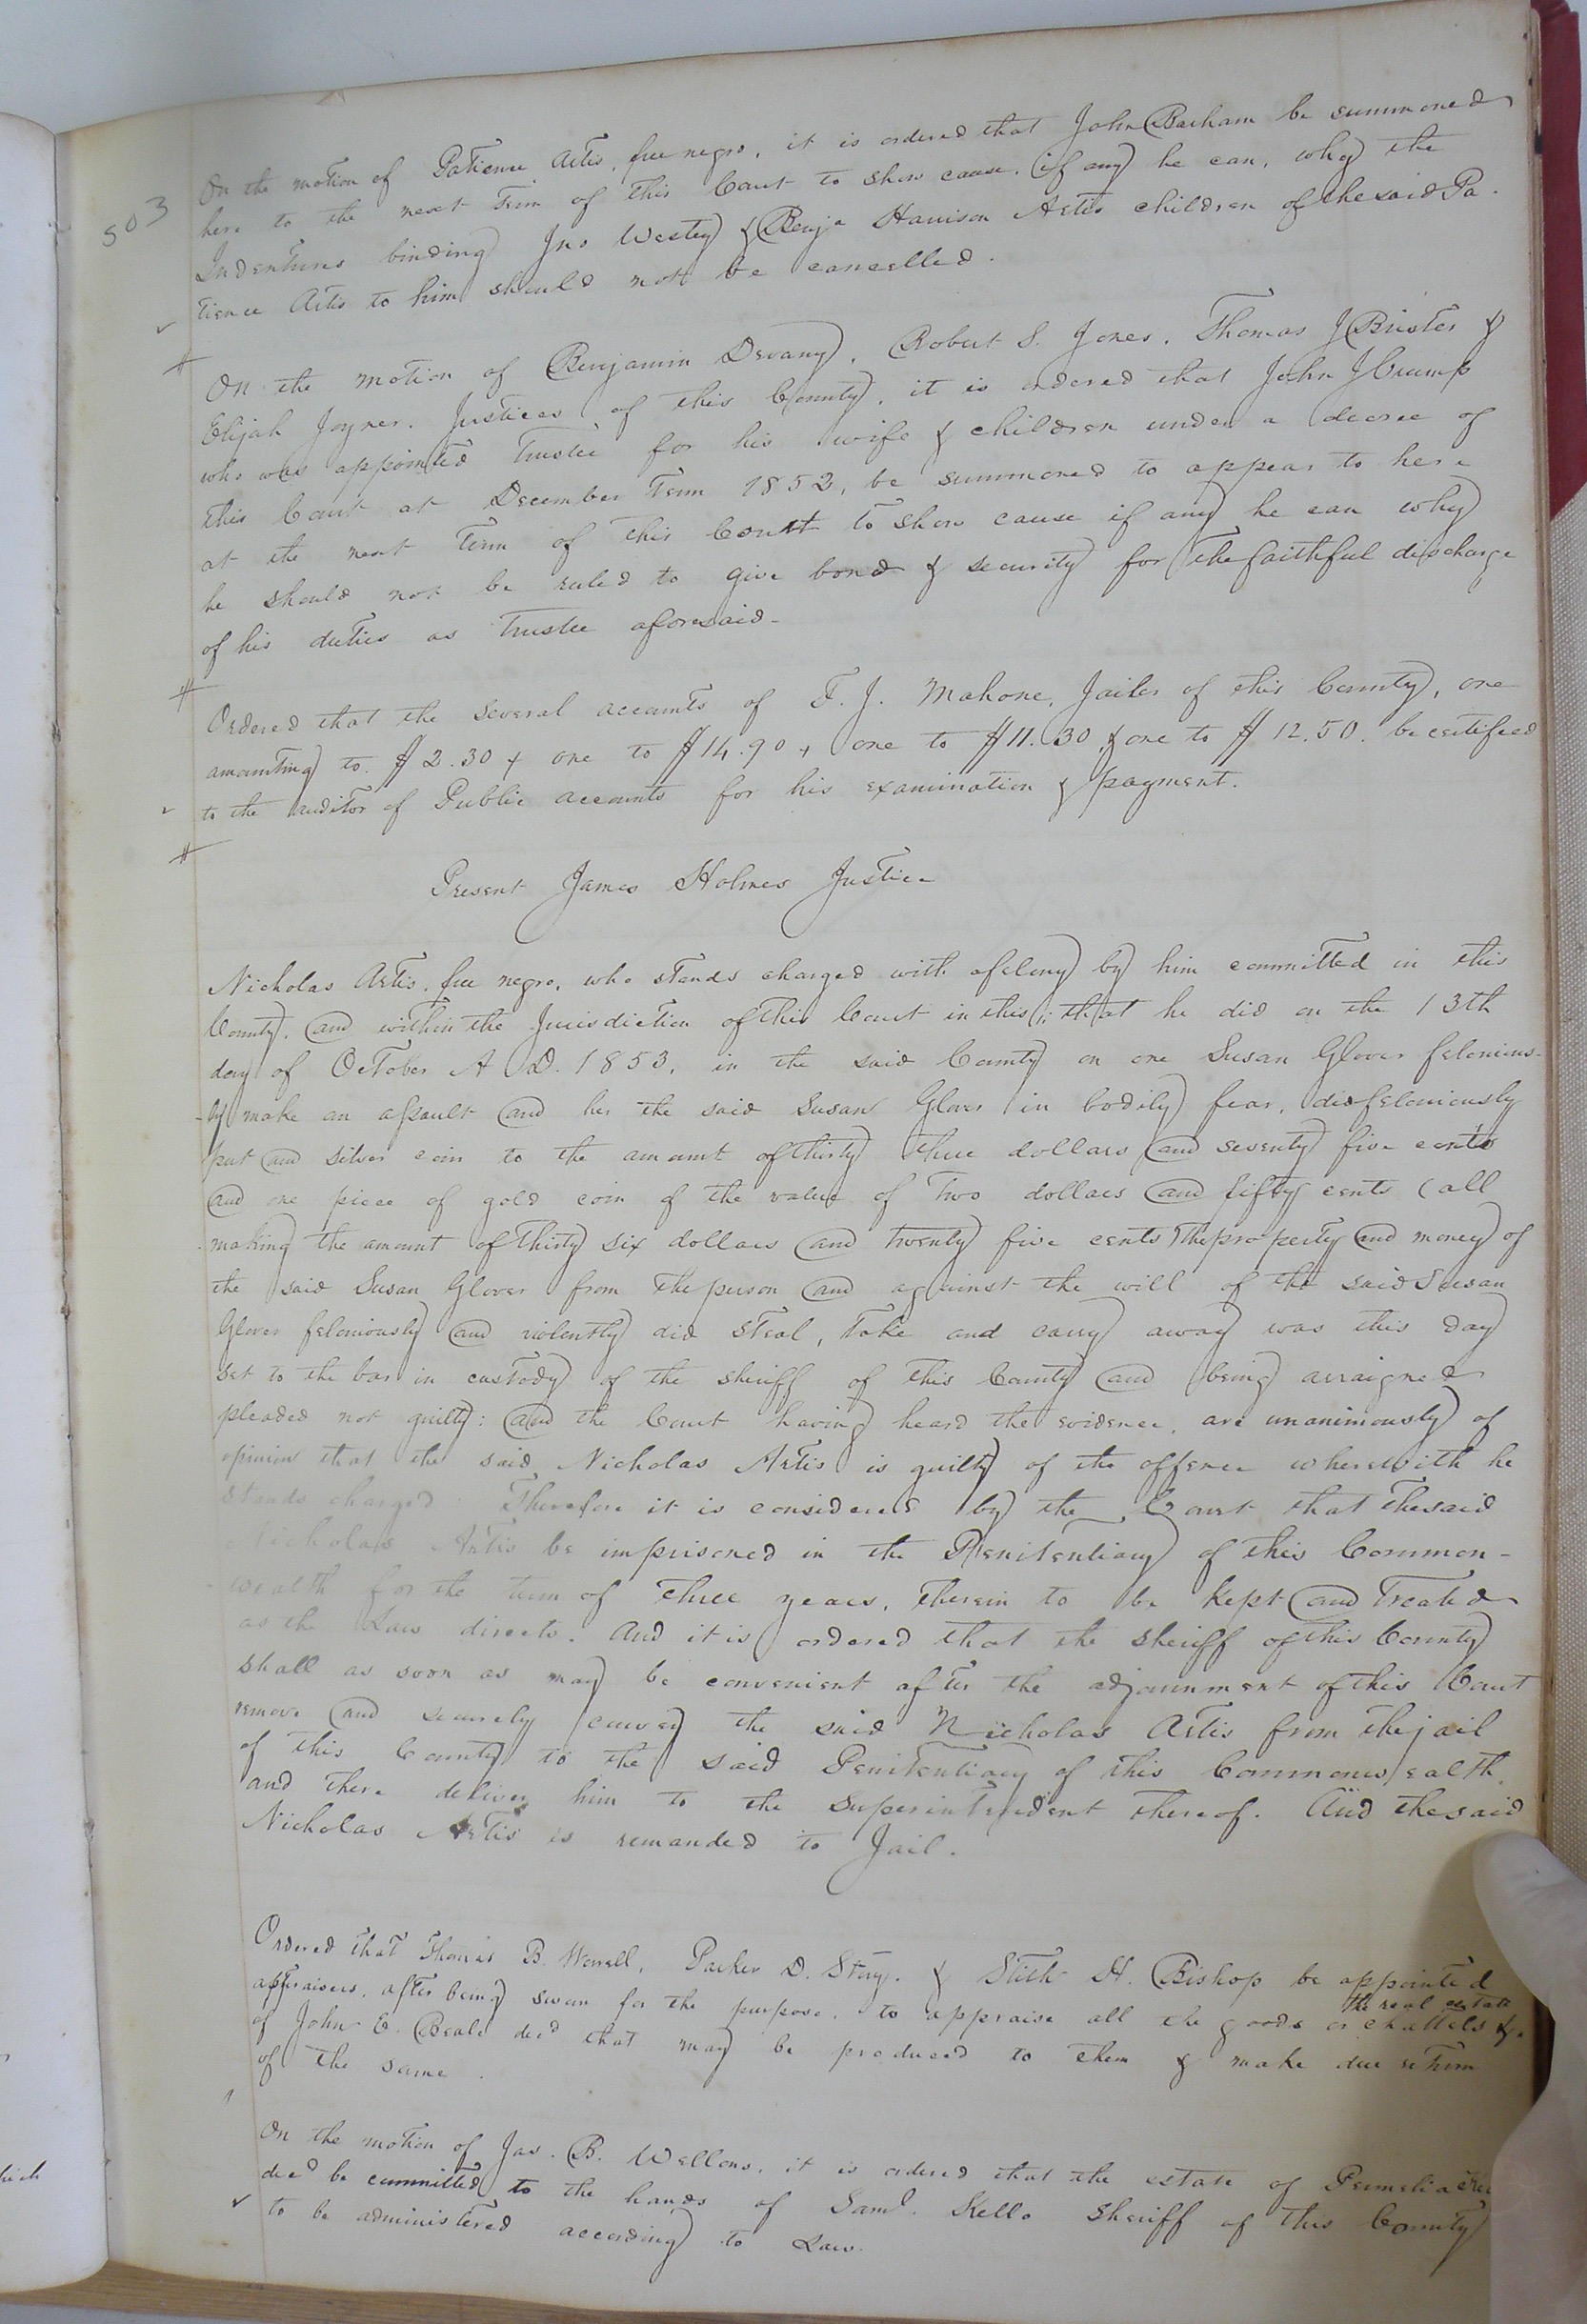 503
On the motion of Patience Artis, free negro, it is ordered that John Barham be summoned
here to the next Term of this Court to show cause, if any he can, why the
Indentures binding Jno Westey & Benja Harrison Artis children of the said Pa-
tience Artis to him should not be cancelled.
On the motion of Benjamin Devany, Robert S. Jones, Thomas J Brister &
Elijah Joyner, Justices of this County, it is ordered that John J Crump
who was appointed Trustee for his wife & children under a decree of
this Court at December Term 1852, be summoned to appear to here
at the next Term of this Court to show cause if any he can why
he should not be ruled to give bond & security for the faithful discharge
of his duties as Trustee aforesaid-
Ordered that the several accounts of T. J. Mahone, Jailer of this County, one
amounting to $2.30 & one to $14.90 & one to $11.30 & one to $12.50. be certified
to the auditor of Public accounts for his examination & payment.
Present James Holmes Justice
Nicholas Artis, free negro, who stands charged with a felony by him committed in this
County, and within the Jurisdiction of this Court in this; that he did on the 13th
day of October A D. 1853, in the said County on one Susan Glover felonious-
-ly make an assault and her the said Susan Glover in bodily fear, did feloniously
put and silver coin to the amount of thirty three dollars and seventy five cents
and one piece of gold coin of the value of two dollars and fifty cents (all
making the amount of thirty six dollars and twenty five cents) the property and money of
the said Susan Glover from the person and against the will of the said Susan
Glover feloniously and violently did steal, take and carry away was this day
set to the bar in custody of the sheriff of this County and being arraigned
pleaded not guilty: and the Court having heard the evidence, are unanimously of
opinion that the said Nicholas Artis is guilty of the offence wherewith he
stands charged: Therefore it is considered by the Court that the said
Nicholas Artis be imprisoned in the Penitentiary of this Common-
-wealth for the term of three years, therein to be kept and treated
as the Law directs. And it is ordered that the sheriff of this County
shall as soon as may be convenient after the adjournment of this Court
remove and securely convey the said Nicholas Artis from the jail
of this County to the said Penitentiary of this Commonwealth
and there deliver him to the superintendent thereof. And the said
Nicholas Artis is remanded to Jail.
Ordered that Thomas B. Worrell, Parker D. Story, & Stith H. Bishop be appointed
appraisers, after being sworn for the purpose, to appraise all the goods or chattels &
the real estate
of John E. Beale decd that may be produced to them & make due return
of the same.
On the motion of Jas. B. Wellons, it is ordered that the estate of Permelia
decd be committed to the hands of Saml. Kello Sheriff of this County
to be administered according to Law.